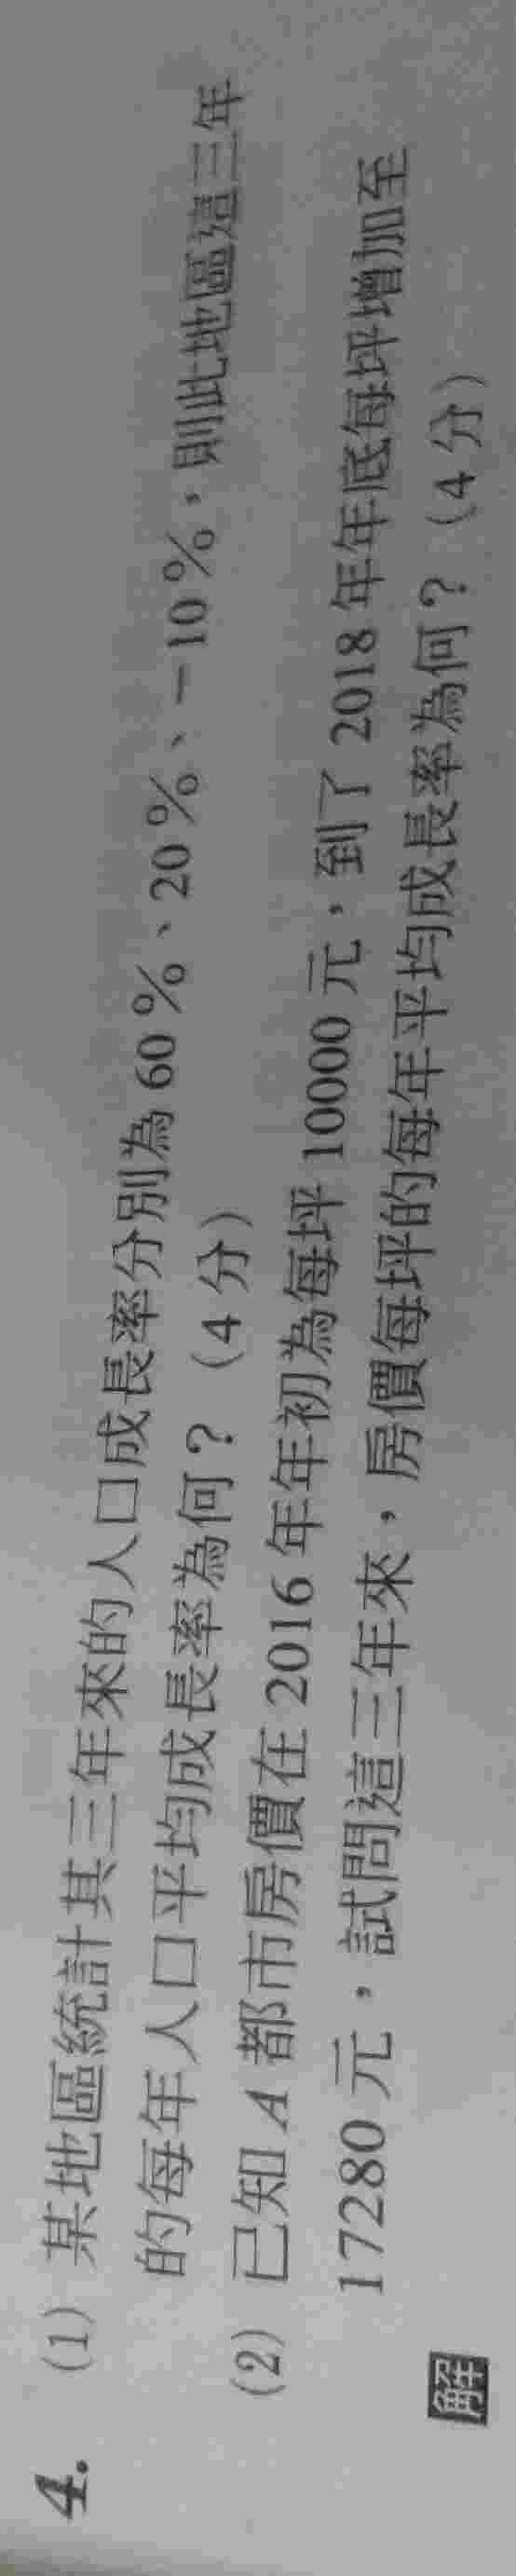 4. (1) 某地區統計其三年來的人口成長率分別為 60 %、20 %、-10 %，則此地區這三年
的每年人口平均成長率為何？（4 分）
(2) 已知 A 都市房價在 2016 年年初為每坪 10000 元，到了 2018 年年底每坪增加至
17280 元，試問這三年來，房價每坪的每年平均成長率為何？（4 分）
解